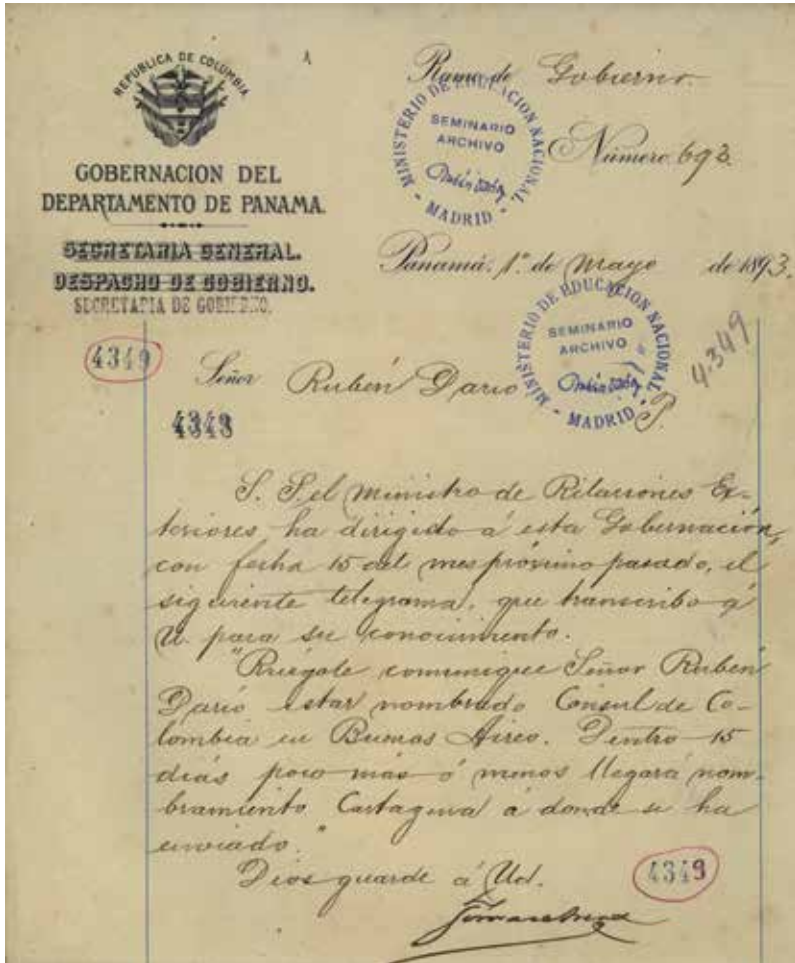 REPUBLICA DE COLOMBIA
GOBERNACION DEL
DEPARTAMENTO DE PANAMA.
SECRETARIA GENERAL.
DESPACHO DE GOBIERNO.
SECRETARIA DE GOBIERNO.
Ramo de Gobierno.
MINISTERIO DE EDUCACION NACIONAL
SEMINARIO
ARCHIVO
- MADRID -
Número 693.
Panamá, 1º de Mayo de 1893.
MINISTERIO DE EDUCACION NACIONAL
SEMINARIO
ARCHIVO
- MADRID -
4349
4.349
Señor Rubén Dario
P.
4349
S. S. el Ministro de Relaciones Ex-
teriores, ha dirigido á esta Gobernación,
con fecha 15 del mes próximo pasado, el
siguiente telegrama, que transcribo á
U. para su conocimiento.
"Ruégole comunique Señor Rubén
Darío estar nombrado Consul de Co-
lombia en Buenos Aires. Dentro 15
días poco más ó menos llegará nom-
bramiento Cartagena á donde se ha
enviado."
Dios guarde á Ud.
4349